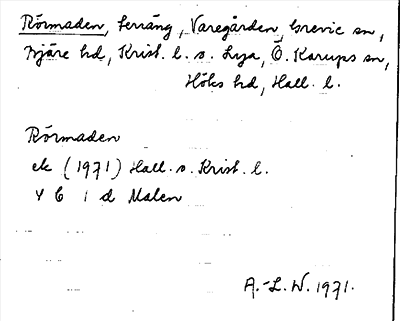 Rörmaden, Terräng, Varegården, Grevie sn,
Bjäre hd, Krist. l. o. Lya, Ö. Karups sn,
Höks hd, Hall. l.
Rörmaden
ek (1971) Hall. o. Krist. l.
4 C 1 d Malen
A.-L. W. 1971.